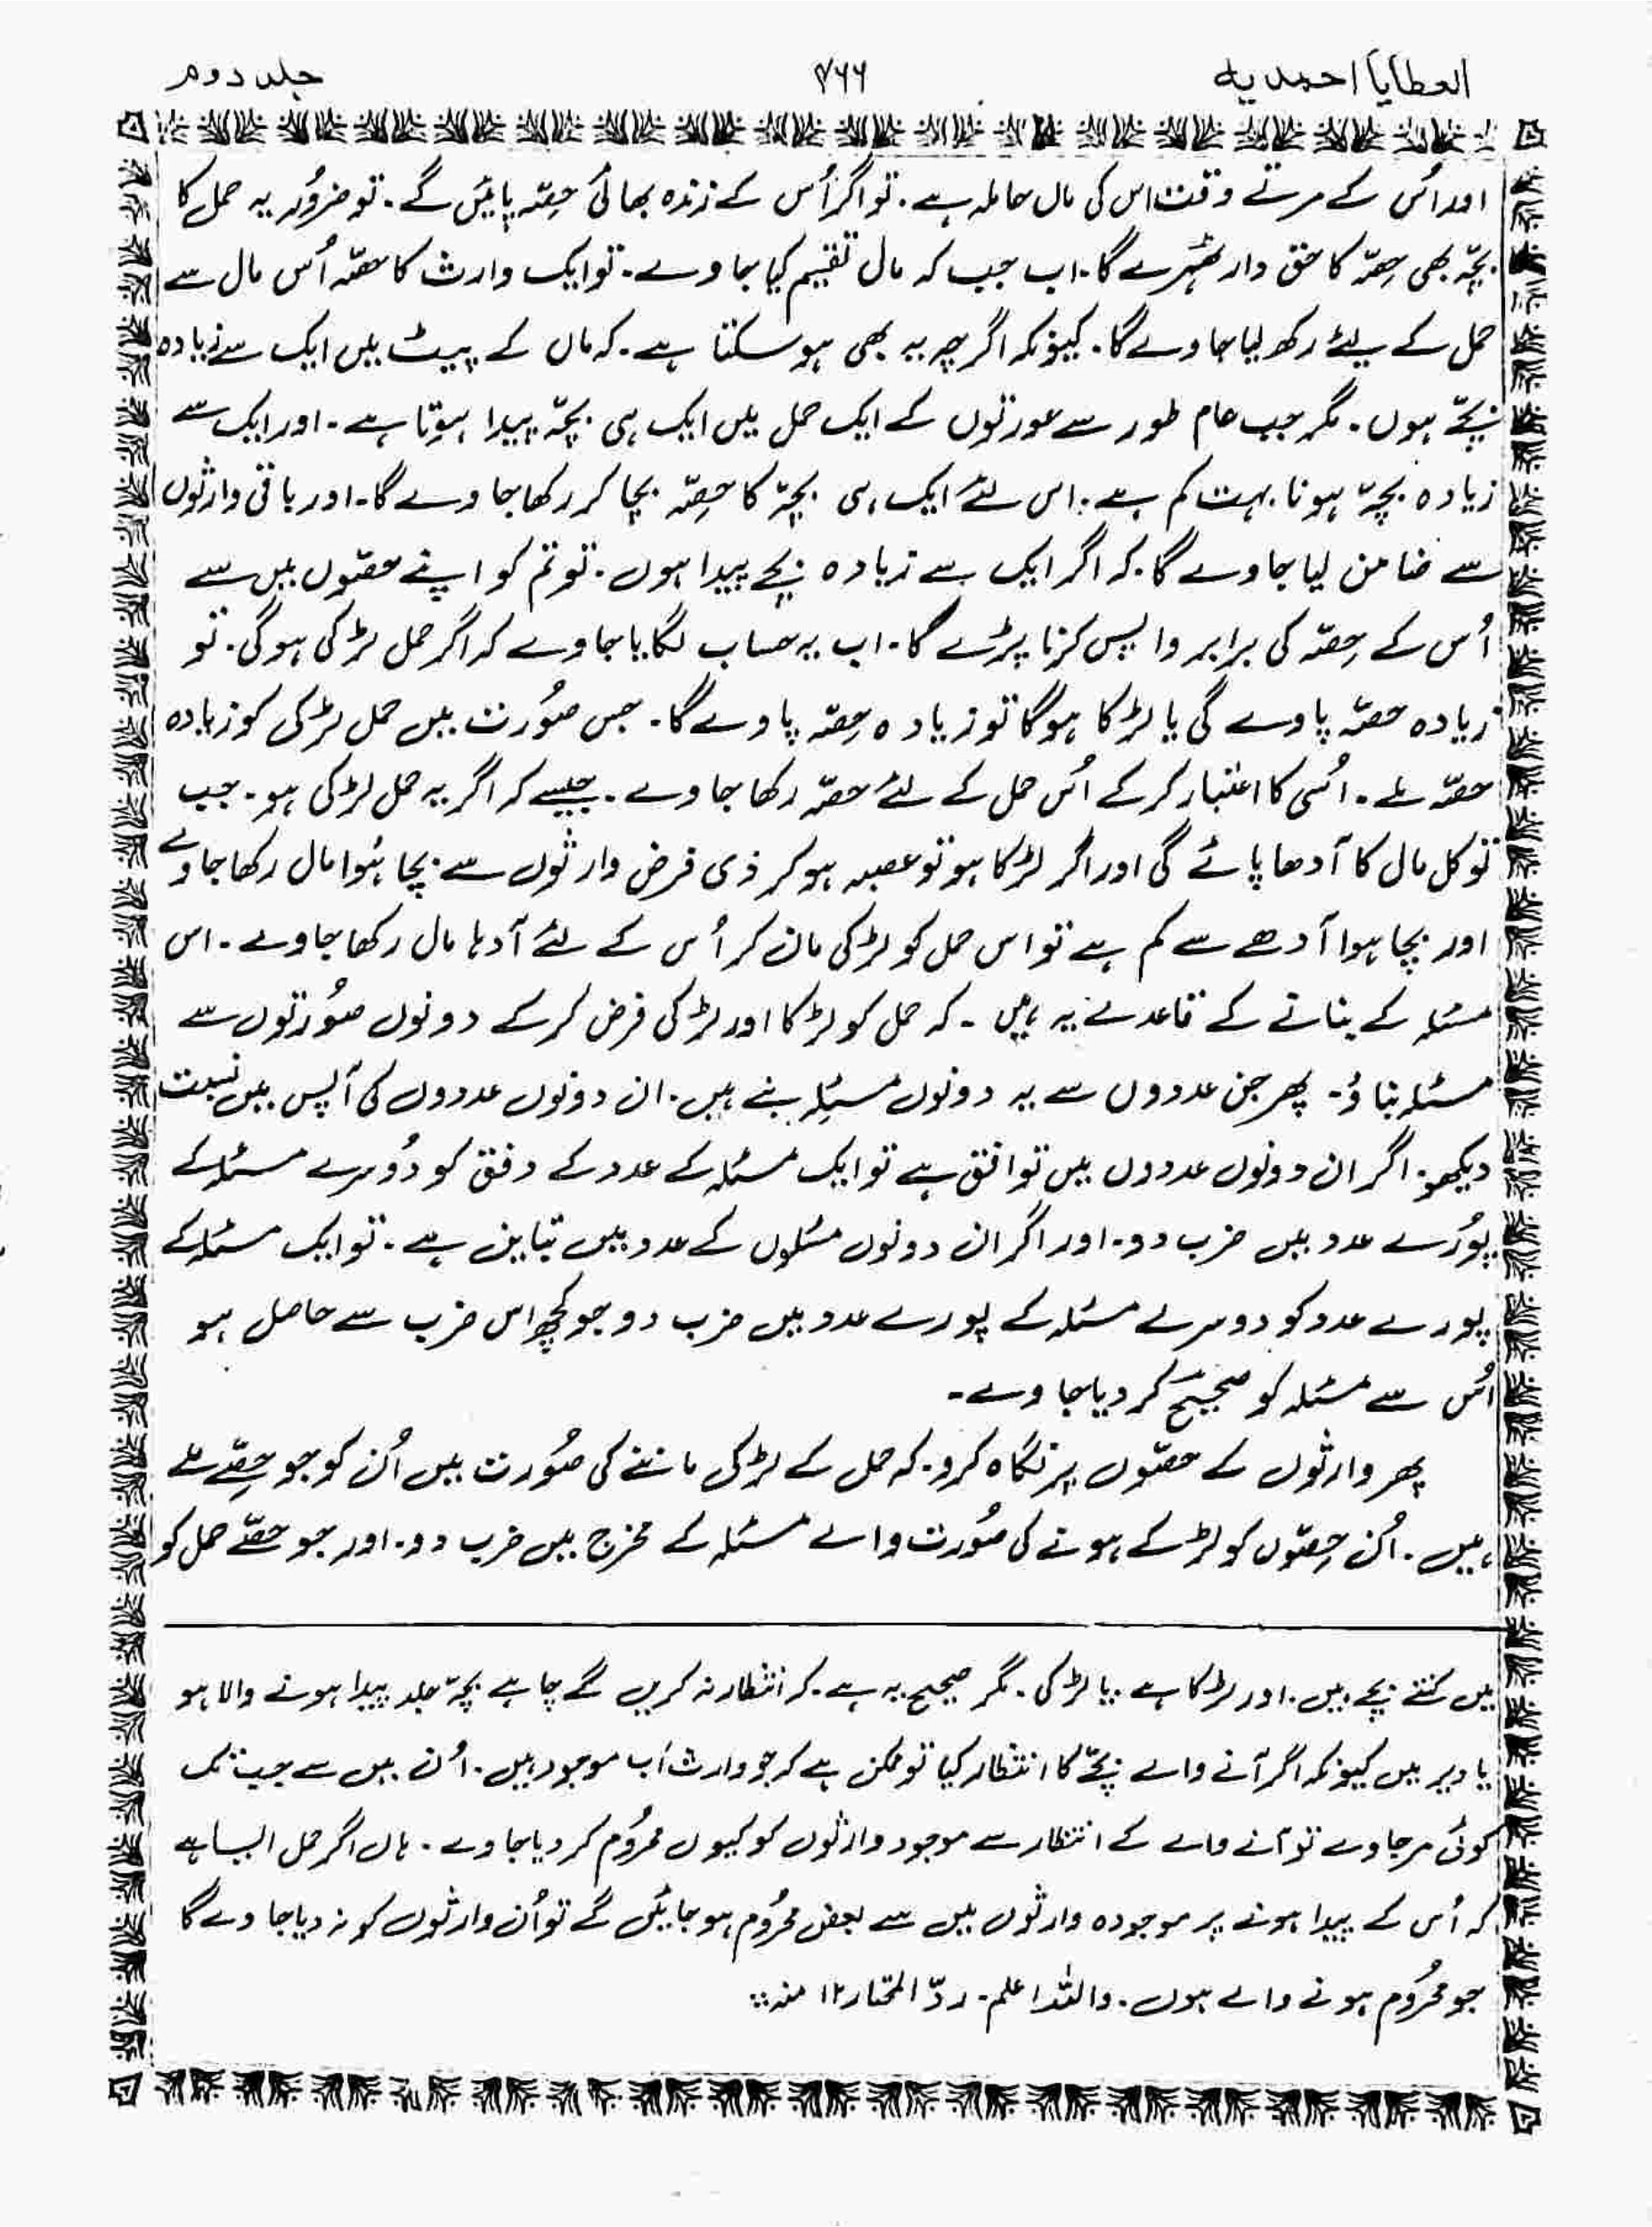 العطایا احمدیہ
۴۶۶
جلد دوم
اور اُس کے مرتے وقت اس کی ماں حاملہ ہے۔ تو اگر اُس کے زندہ بھائی حِصّہ پائیں گے۔ تو ضرُور یہ حمل کا
بچّہ بھی حِصّہ کا حق دار ٹھہرے گا۔ اب جب کہ مال تقسیم کیا جاوے۔ تو ایک وارث کا حصّہ اُس مال سے
حمل کے لیئے رکھ لیا جاوے گا۔ کیونکہ اگرچہ یہ بھی ہو سکتا ہے۔ کہ ماں کے پیٹ میں ایک سے زیادہ
بچّے ہوں۔ مگر جب عام طور سے عورتوں کے ایک حمل میں ایک ہی بچّہ پیدا ہوتا ہے۔ اور ایک سے
زیادہ بچّہ ہونا بہت کم ہے۔ اس لئے ایک ہی بچّہ کا حِصّہ بچا کر رکھا جاوے گا۔ اور باقی وارثوں
سے ضامن لیا جاوے گا۔ کہ اگر ایک سے زیادہ بچے پیدا ہوں۔ تو تم کو اپنے حصّوں میں سے
اُس کے حِصّہ کی برابر واپس کرنا پڑے گا۔ اب یہ حساب لگایا جاوے کہ اگر حمل لڑکی ہوگی۔ تو
زیادہ حصّہ پاوے گی یا لڑکا ہوگا تو زیادہ حِصّہ پاوے گا۔ جس صُورت میں حمل لڑکی کو زیادہ
حصّہ ملے۔ اُسی کا اعتبار کر کے اُس حمل کے لئے حصّہ رکھا جاوے۔ جیسے کہ اگر یہ حمل لڑکی ہو۔ جب
تو کل مال کا آدھا پائے گی اور اگر لڑکا ہو تو عصبہ ہو کر ذی فرض وارثوں سے بچا ہُوا مال رکھا جاوے
اور بچا ہوا آدھے سے کم ہے تو اس حمل کو لڑکی مان کر اُس کے لئے آدہا مال رکھا جاوے۔ اس
مسئلہ کے بنانے کے قاعدے یہ ہیں۔ کہ حمل کو لڑکا اور لڑکی فرض کر کے دونوں صُورتوں سے
مسئلہ بناؤ۔ پھر جن عددوں سے یہ دونوں مسئلہ بنے ہیں۔ ان دونوں عددوں کی آپس میں نسبت
دیکھو۔ اگر ان دونوں عددوں میں توافق ہے تو ایک مسئلہ کے عدد کے وفق کو دُوسرے مسئلہ کے
پُورے عدد میں ضرب دو۔ اور اگر ان دونوں مسئلوں کے عدد میں تباین ہے۔ تو ایک مسئلہ کے
پورے عدد کو دوسرے مسئلہ کے پورے عدد میں ضرب دو جو کچھ اس ضرب سے حاصل ہو
اُس سے مسئلہ کو صحیح کر دیا جاوے۔
پھر وارثوں کے حصّوں پر نگاہ کرو۔ کہ حمل کے لڑکی ماننے کی صُورت میں اُن کو جو حِصّے ملے
ہیں۔ اُن حِصّوں کو لڑکے ہونے کی صُورت والے مسئلہ کے مخرج میں ضرب دو۔ اور جو حصّے حمل کو
میں کتنے بچے ہیں۔ اور لڑکا ہے یا لڑکی۔ مگر صحیح یہ ہے۔ کہ انتظار نہ کریں گے چاہے بچّہ جلد پیدا ہونے والا ہو
یا دیر میں کیونکہ اگر آنے والے بچّے کا انتظار کیا تو ممکن ہے کہ جو وارث اَب موجود ہیں۔ اُن میں سے جب تک
کوئی مر جاوے تو آنے والے کے انتظار سے موجود وارثوں کو کیوں محرُوم کر دیا جاوے۔ ہاں اگر حمل ایسا ہے
کہ اُس کے پیدا ہونے پر موجودہ وارثوں میں سے بعض محرُوم ہو جائیں گے تو اُن وارثوں کو نہ دیا جاوے گا
جو محرُوم ہونے والے ہوں۔ واللہ اعلم۔ ردّ المختار ۱۲ منہ